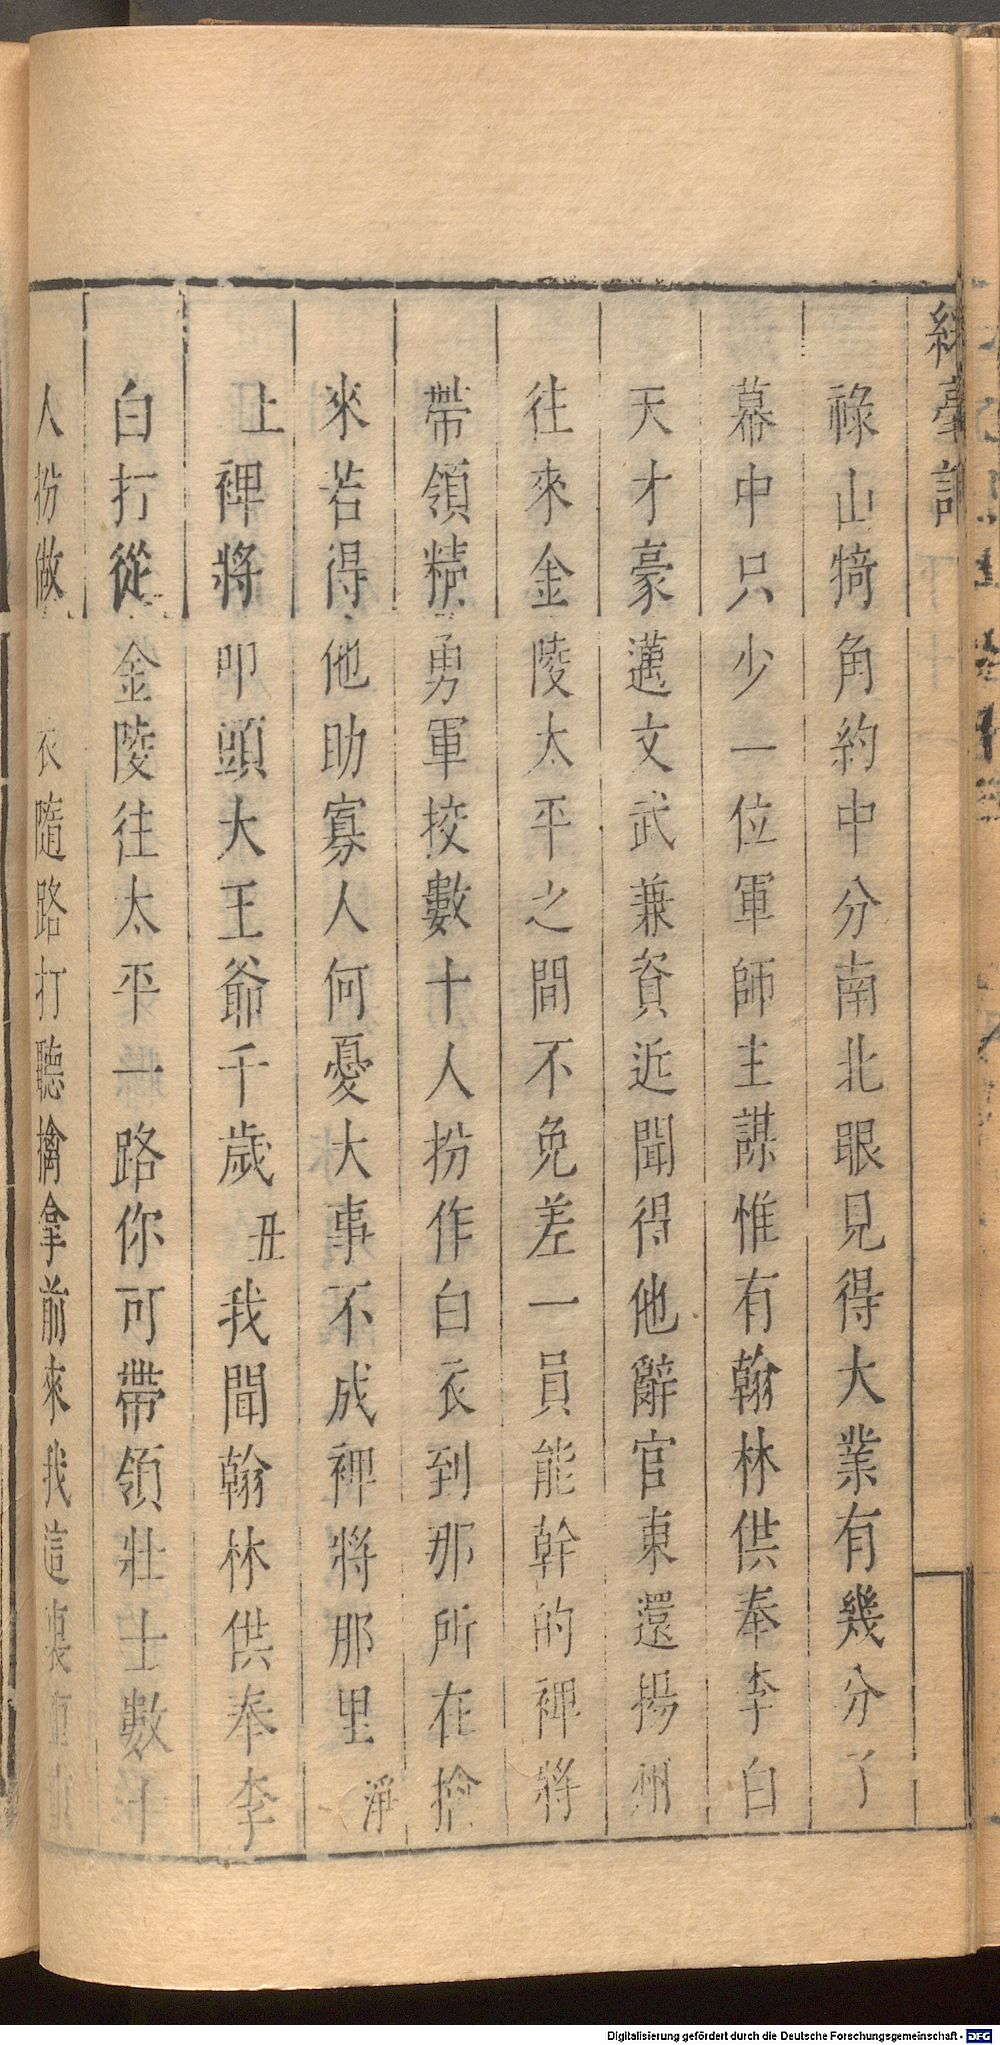 綵毫記
祿山犄角約中分南北眼見得大業有幾分了
幕中只少一位軍師主謀惟有翰林供奉李白
天才豪邁文武兼資近聞得他辭官東還揚州
往來金陵太平之間不免差一員能幹的裨將
帶領精勇軍挍數十人扮作白衣到那所在擒
來若得他助寡人何憂大事不成裨將那里淨
上裨將叩頭大王爺千歲丑我聞翰林供奉李
白打從金陵往太平一路你可帶領壯士數十
人扮做衣隨路打聽擒拿前來我這裏
Digitalisierung gefördert durch die Deutsche Forschungsgemeinschaft - DFG